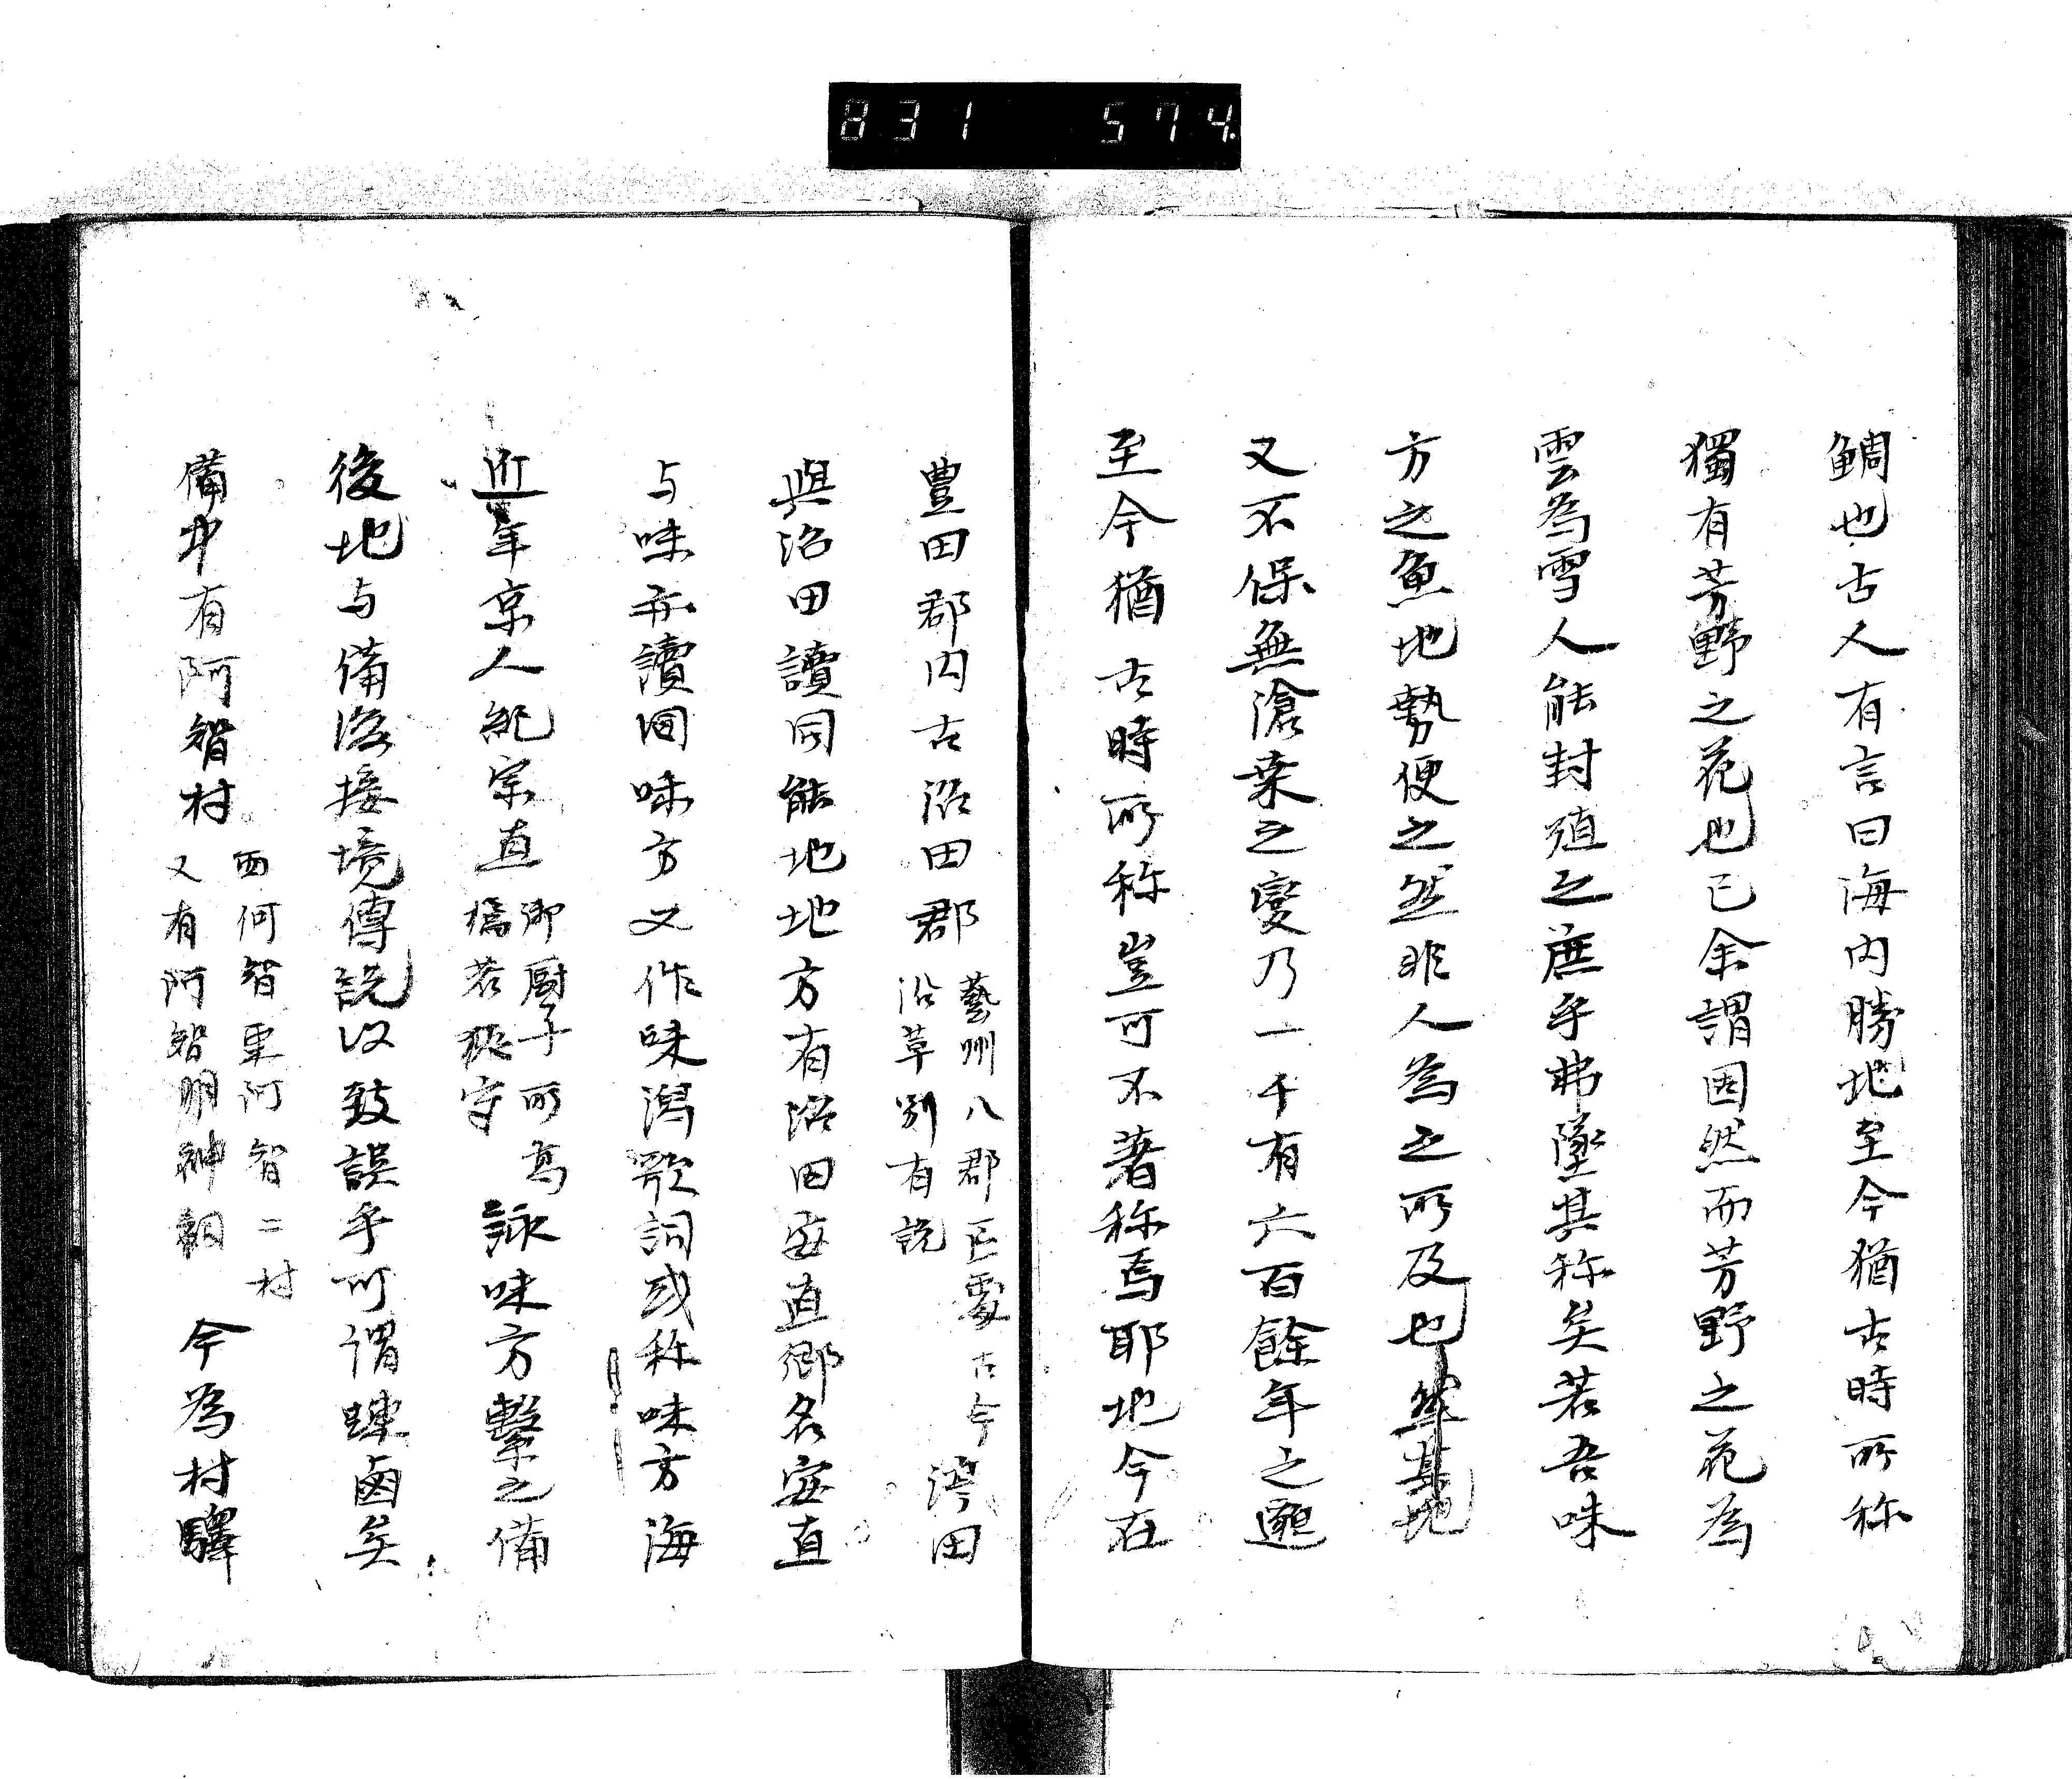 831 574
鯛也古人有言曰海内勝地至今猶古時所称
獨有芳野之花也已余謂因然而芳野之花為
雲為雪人能封殖之庶乎弗墜其称矣若吾味
方之魚地勢便之然非人為之所及也
又不保無滄桒之變乃一千有六百餘年之遐
至今猶古時所称豈可不著称焉耶地今在
豊田郡内古沼田郡
藝州八郡古今
沿革別有説
沼田
與沼田讀同能地地方有沼田安直郷名安直
与味讀同味方又作味潟歌詞或称味方海
近年京人紀宗直
御厨子所
若狹守
詠味方繫之備
後地与備後接境傳説以致誤乎可謂踈鹵矣
備中有阿智村
西阿智東阿智二村
又有阿智明神祠
今為村驛